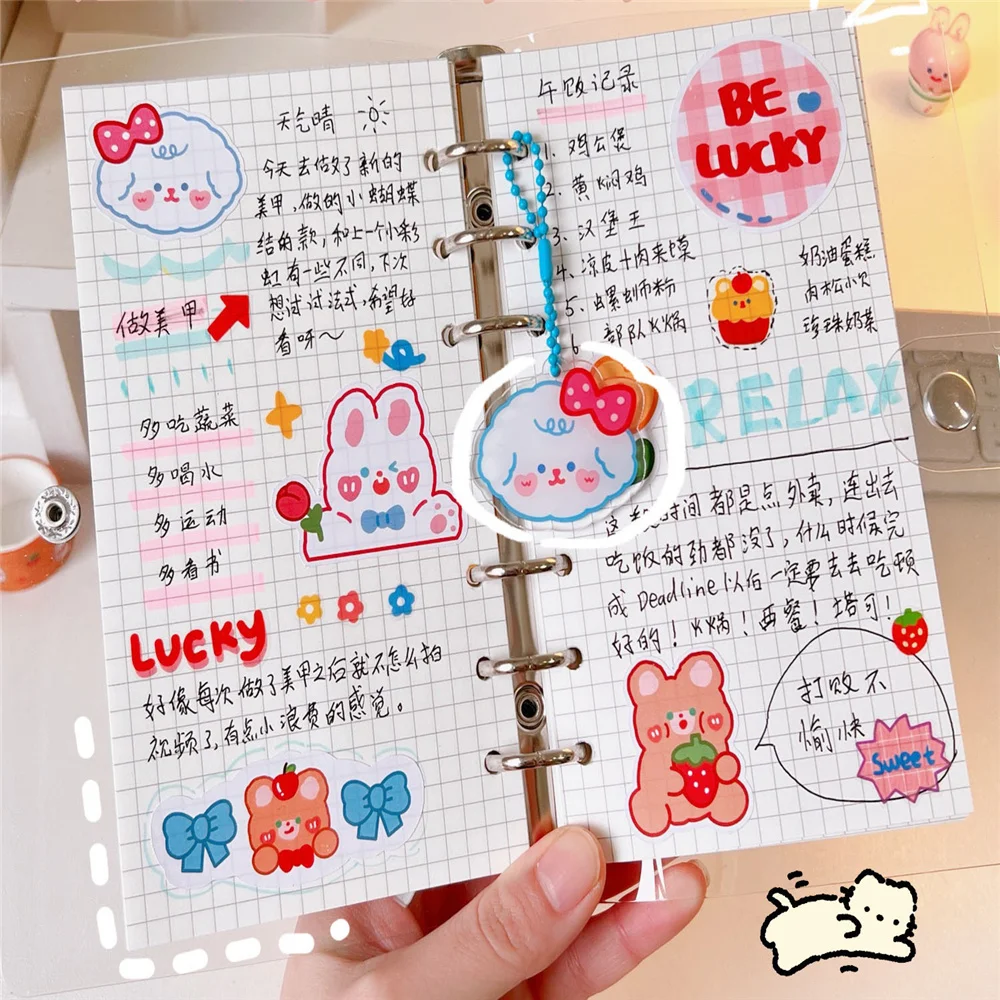 天气晴
今天去做了新的
美甲,做的小蝴蝶
结的款,和上一个小彩
虹有一些不同,下次
想试试法式,希望好
看呀~
做美甲
多吃蔬菜
多喝水
多运动
多看书
LUCKY
好像每次做了美甲之后就不怎么拍
视频了,有点小浪费的感觉。
午饭记录
BE
LUCKY
1. 鸡公煲
2. 黄焖鸡
3、汉堡王
4、凉皮+肉夹馍
5、螺蛳粉
6 部队火锅
奶油蛋糕
肉松小贝
珍珠奶茶
RELAX
这 时间都是点外卖,连出去
吃饭的劲都没了,什么时候完
成Deadline以后一定要去去吃顿
好的!火锅!西餐!塔可!
打败不
愉快
Sweet